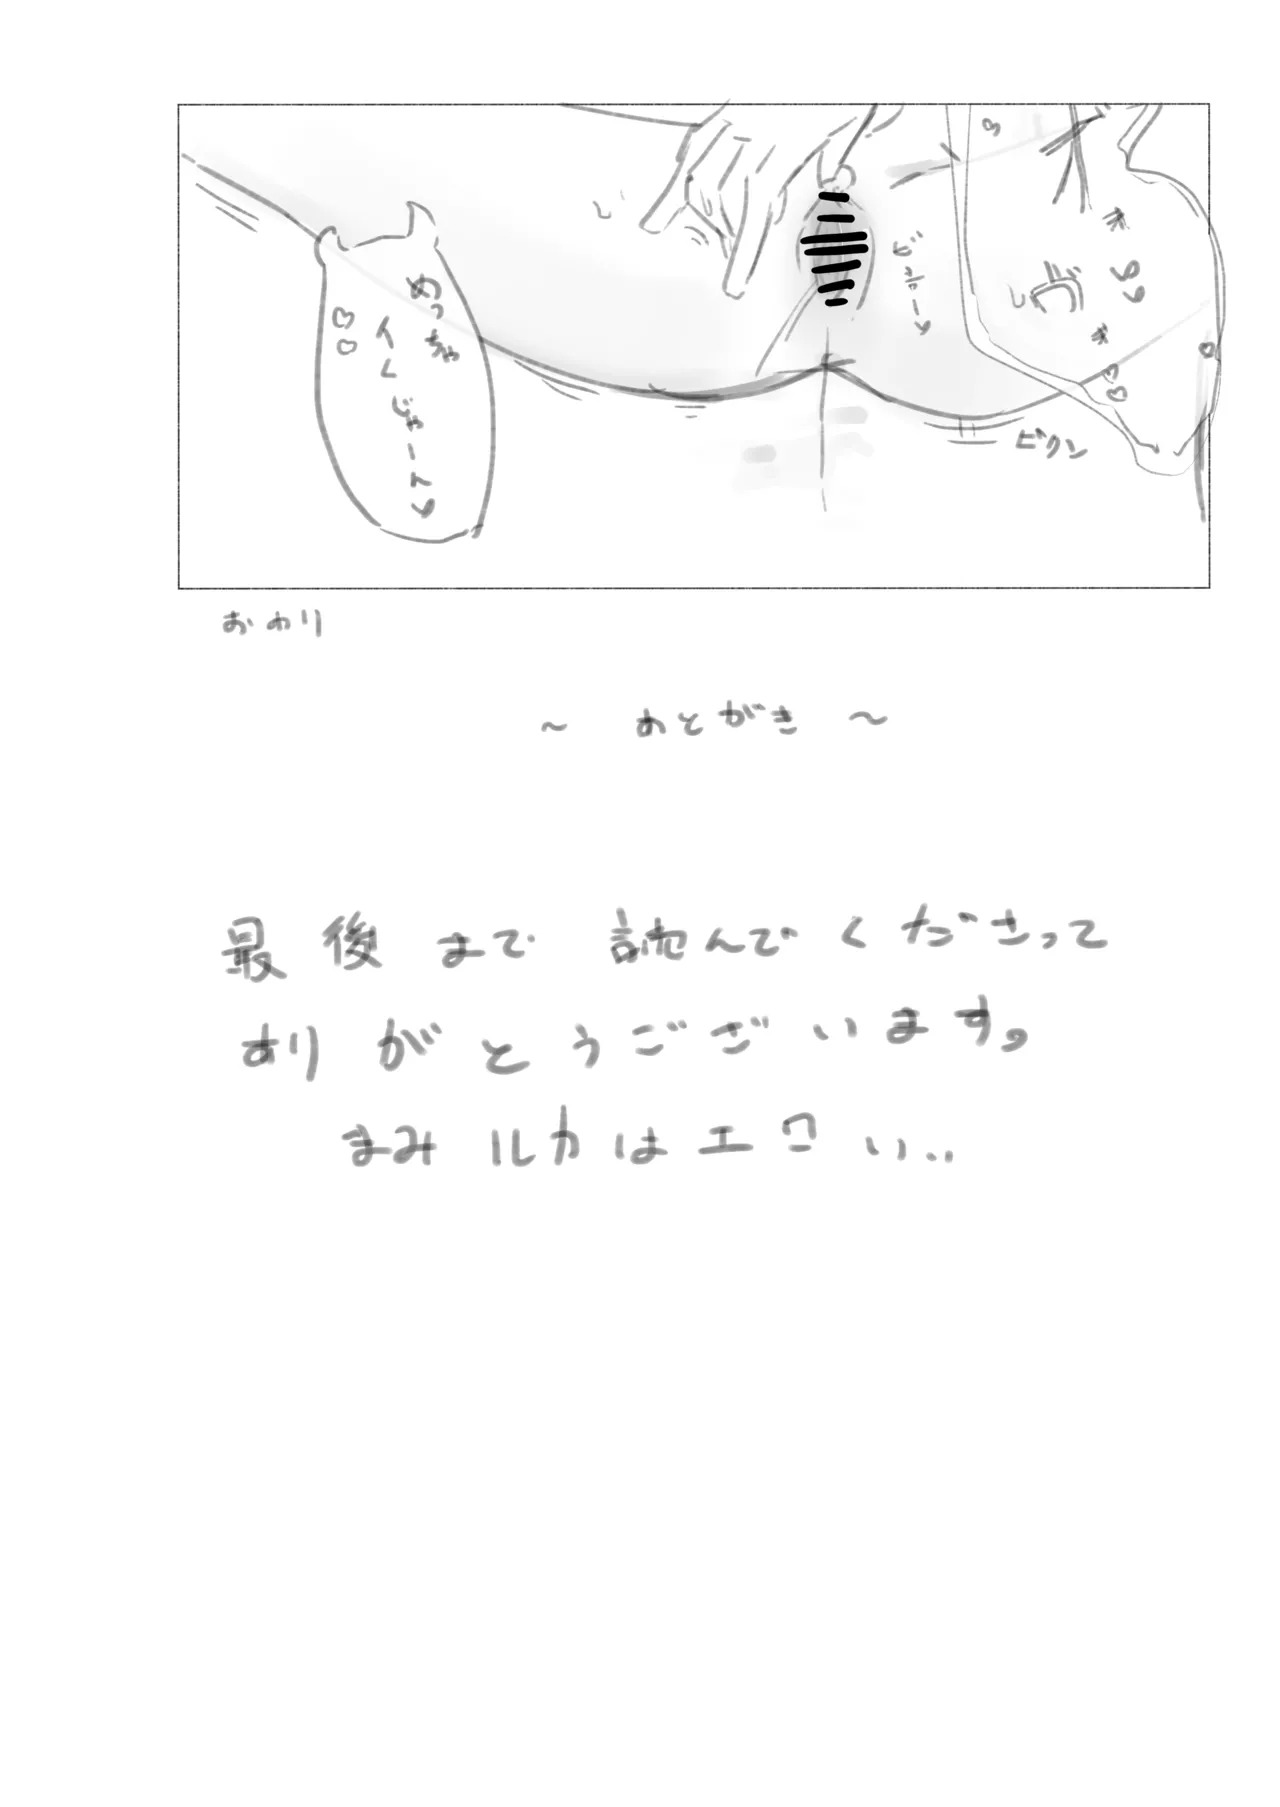 めっちゃ
イくじゃーん♥
ビクン
おわり
～ あとがき ～
最後まで読んでくださって
ありがとうございます。
まみルカはエロい..